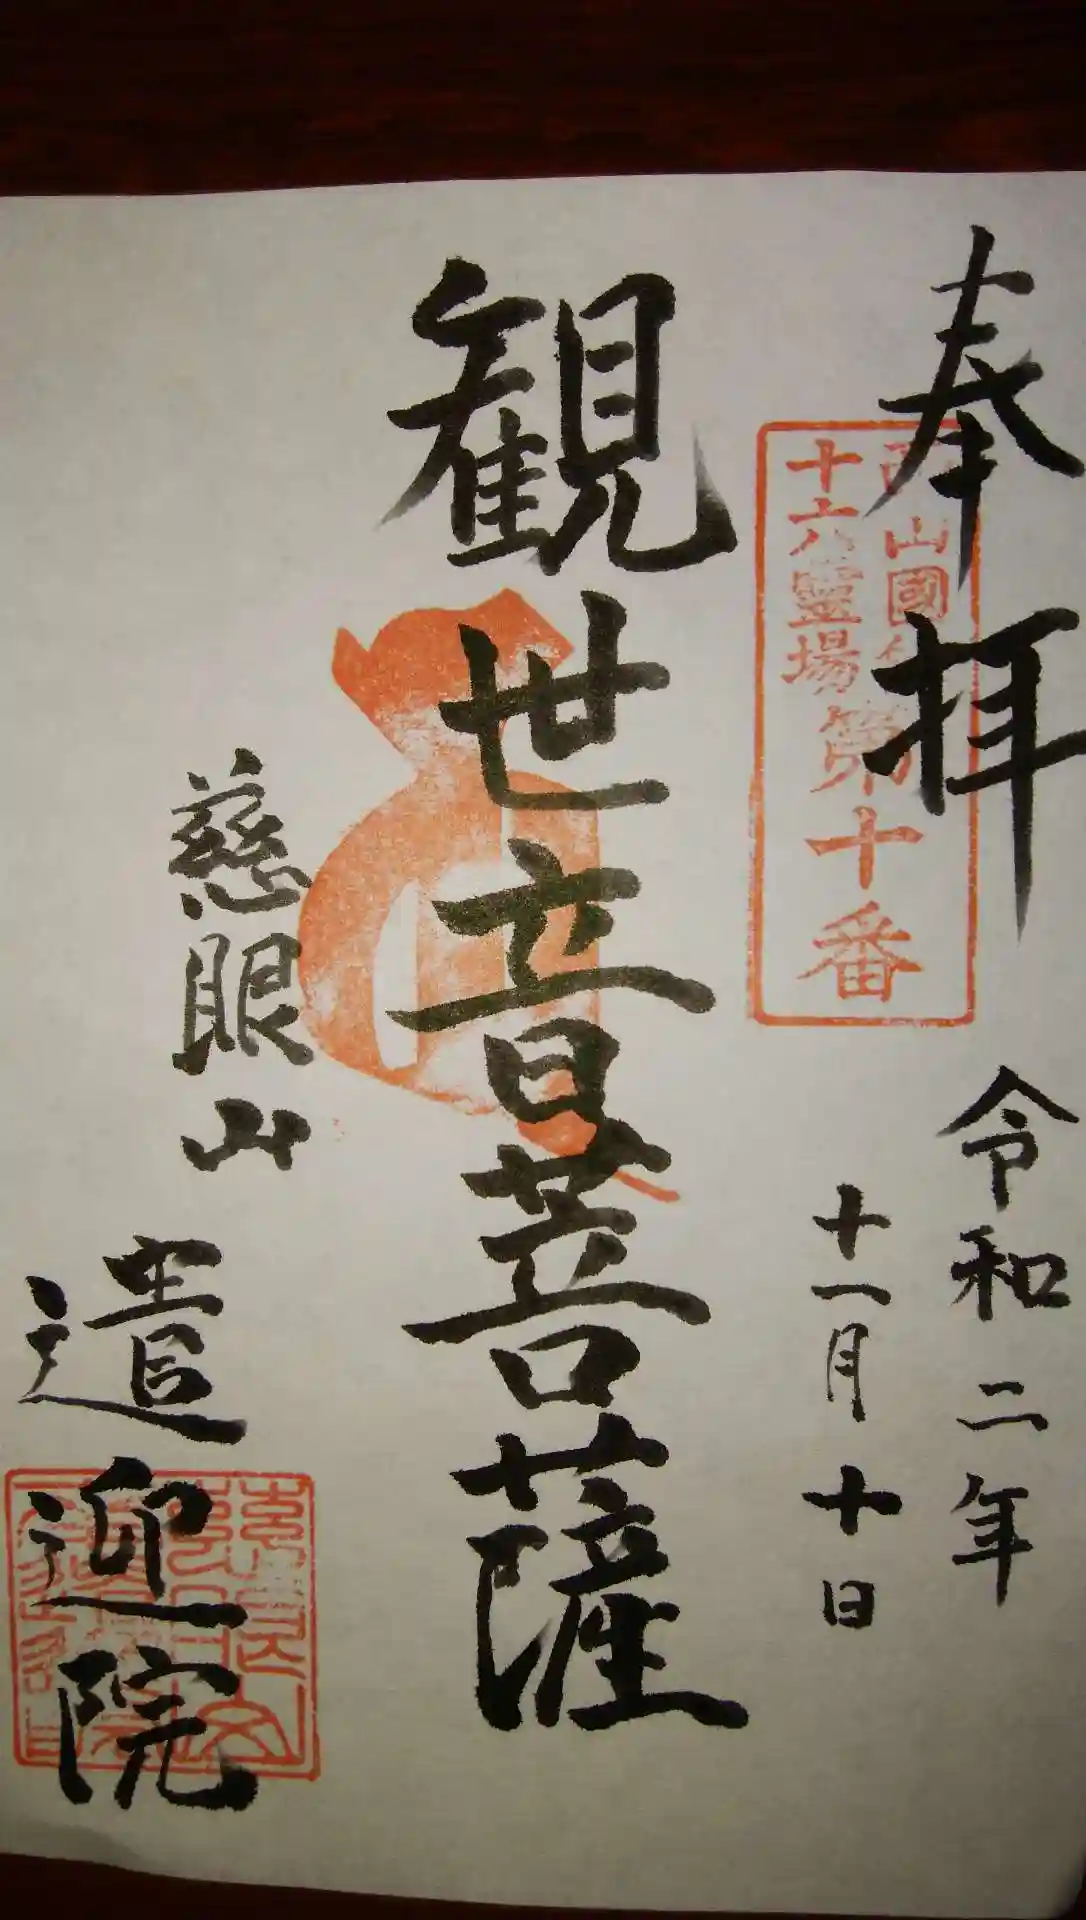 奉拝
山國
十六靈場
第十番
令和二年
十一月十日
観世音菩薩
慈眼山
遣迎院